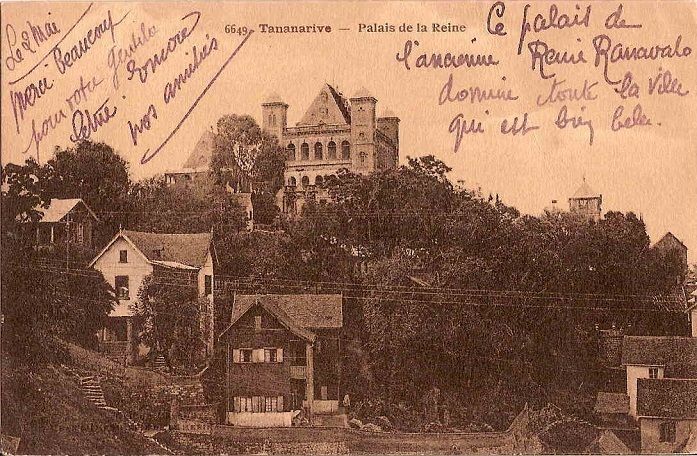 6649. Tananarive — Palais de la Reine
Le 2 Mai
Merci beaucoup
pour votre gentille
lettre. Encore
nos amitiés
Ce palais de
l'ancienne Reine Ranavalo
domine toute la ville
qui est bien belle.